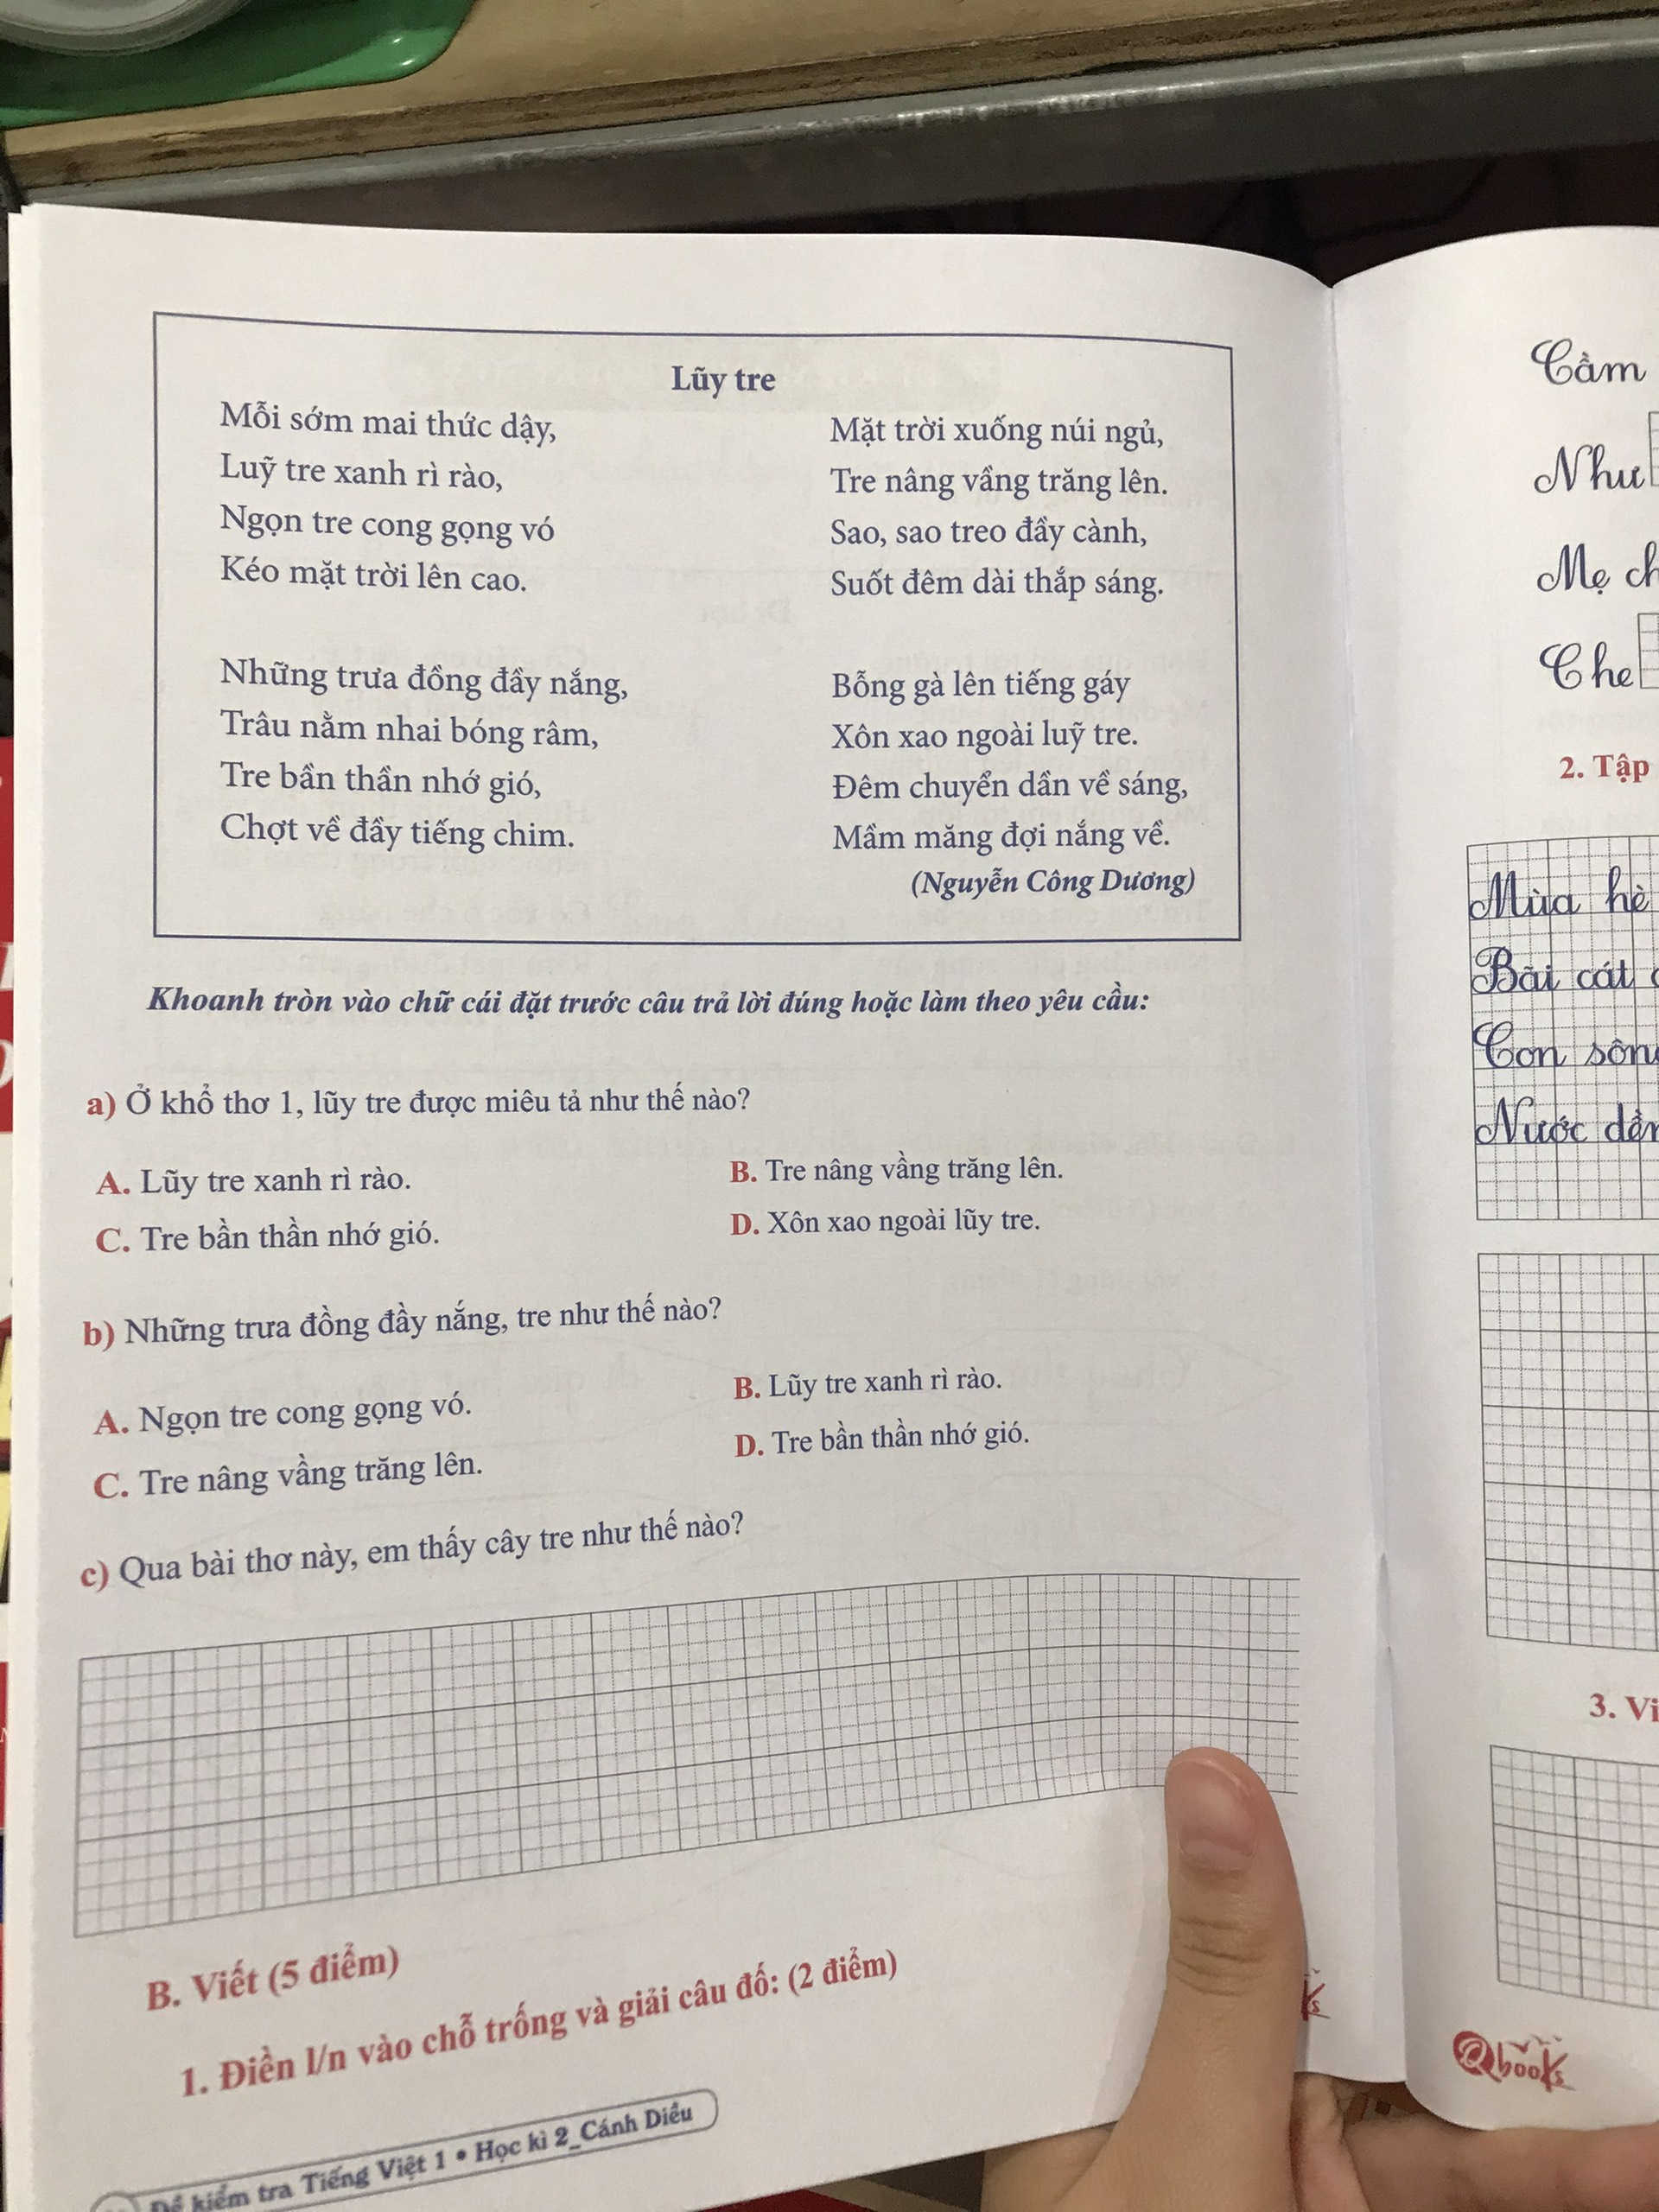 Lũy tre
Mỗi sớm mai thức dậy,
Luỹ tre xanh rì rào,
Ngọn tre cong gọng vó
Kéo mặt trời lên cao.
Những trưa đồng đầy nắng,
Trâu nằm nhai bóng râm,
Tre bần thần nhớ gió,
Chợt về đầy tiếng chim.
Mặt trời xuống núi ngủ,
Tre nâng vầng trăng lên.
Sao, sao treo đầy cành,
Suốt đêm dài thắp sáng.
Bỗng gà lên tiếng gáy
Xôn xao ngoài luỹ tre.
Đêm chuyển dần về sáng,
Mầm măng đợi nắng về.
(Nguyễn Công Dương)
Khoanh tròn vào chữ cái đặt trước câu trả lời đúng hoặc làm theo yêu cầu:
a) Ở khổ thơ 1, lũy tre được miêu tả như thế nào?
A. Lũy tre xanh rì rào.
B. Tre nâng vầng trăng lên.
C. Tre bần thần nhớ gió.
D. Xôn xao ngoài lũy tre.
b) Những trưa đồng đầy nắng, tre như thế nào?
A. Ngọn tre cong gọng vó.
B. Lũy tre xanh rì rào.
C. Tre nâng vầng trăng lên.
D. Tre bần thần nhớ gió.
c) Qua bài thơ này, em thấy cây tre như thế nào?
B. Viết (5 điểm)
1. Điền l/n vào chỗ trống và giải câu đố: (2 điểm)
Đề kiểm tra Tiếng Việt 1 • Học kì 2_Cánh Diều
Cầm
Như
Mẹ ch
Che
2. Tập
Mùa hè
Bãi cát
Con sông
Nước dền
3. Vi
Qbooks